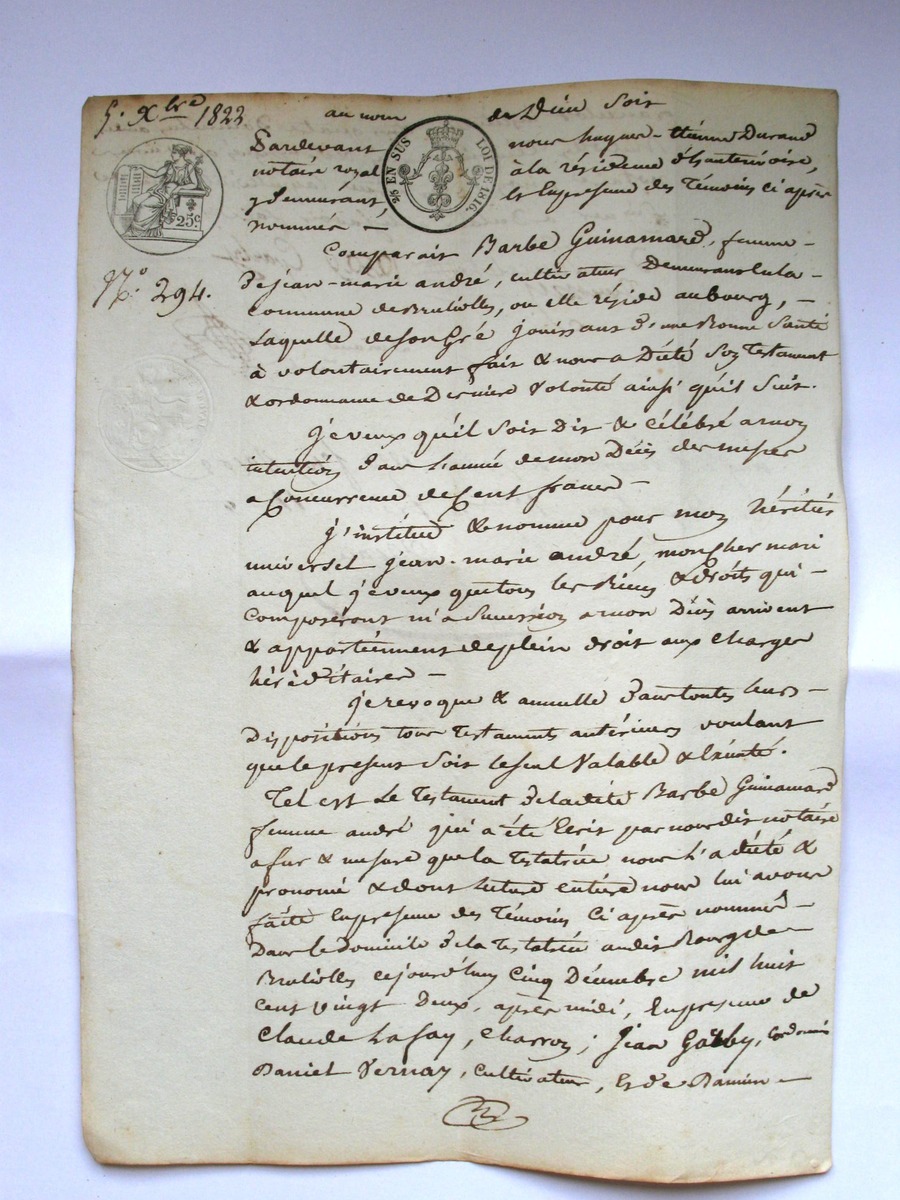 5. Xbre 1822
au nom de Dieu Soit
Pardevant nous hugues-étienne Durand
notaire royal à la résidence d'hauterivoire,
y Demeurant, & En presence des Témoins ci après
nommés -
25 EN SUS LOI DE 1816.
25 c
N.° 294.
Comparait Barbe Guinamard, femme -
de jean-marie andré, cultivateur Demeurant en la -
commune de Brulliolles, ou elle réside au bourg, -
Laquelle de son Gré jouissant d'une Bonne Santé
à volontairement fait & nous a Dicté Son Testament
& ordonnance de Derniere Volonté ainsi qu'il Suit.
je veux qu'il Soit Dit & célébré a mon
intention dans l'année de mon Décès des messes
a Concurrence de Cent francs -
j'institue & nomme pour mon héritier
universel jean-marie andré, mon cher mari
auquel je veux que tous les Biens & droits qui -
composeront m'a Succession a mon Décès arrivent
& appartiennent de plein droit aux charges
héréditaires -
je revoque & annulle dans toutes leurs -
Dispositions tous Testaments antérieurs voulant
que le present Soit le Seul Valable & Exécuté.
Tel est Le Testament de ladite Barbe Guinamard
femme andré qui a été Ecrit par nous dit notaire
a fur & mesure que la Testatrice nous l'a dicté &
prononcé & dont lecture entière nous lui avons
faite En presence des Témoins Ci après nommés -
Dans le Domicile de la Testatrice au dit Bourg de -
Brulliolles cejourd'hui Cinq Décembre mil huit
cent vingt Deux, après midi, En presence de
Claude Lafay, Charron; Jean Gatby, Cordonnier
Daniel Vernay, Cultivateur, Et de Damien -